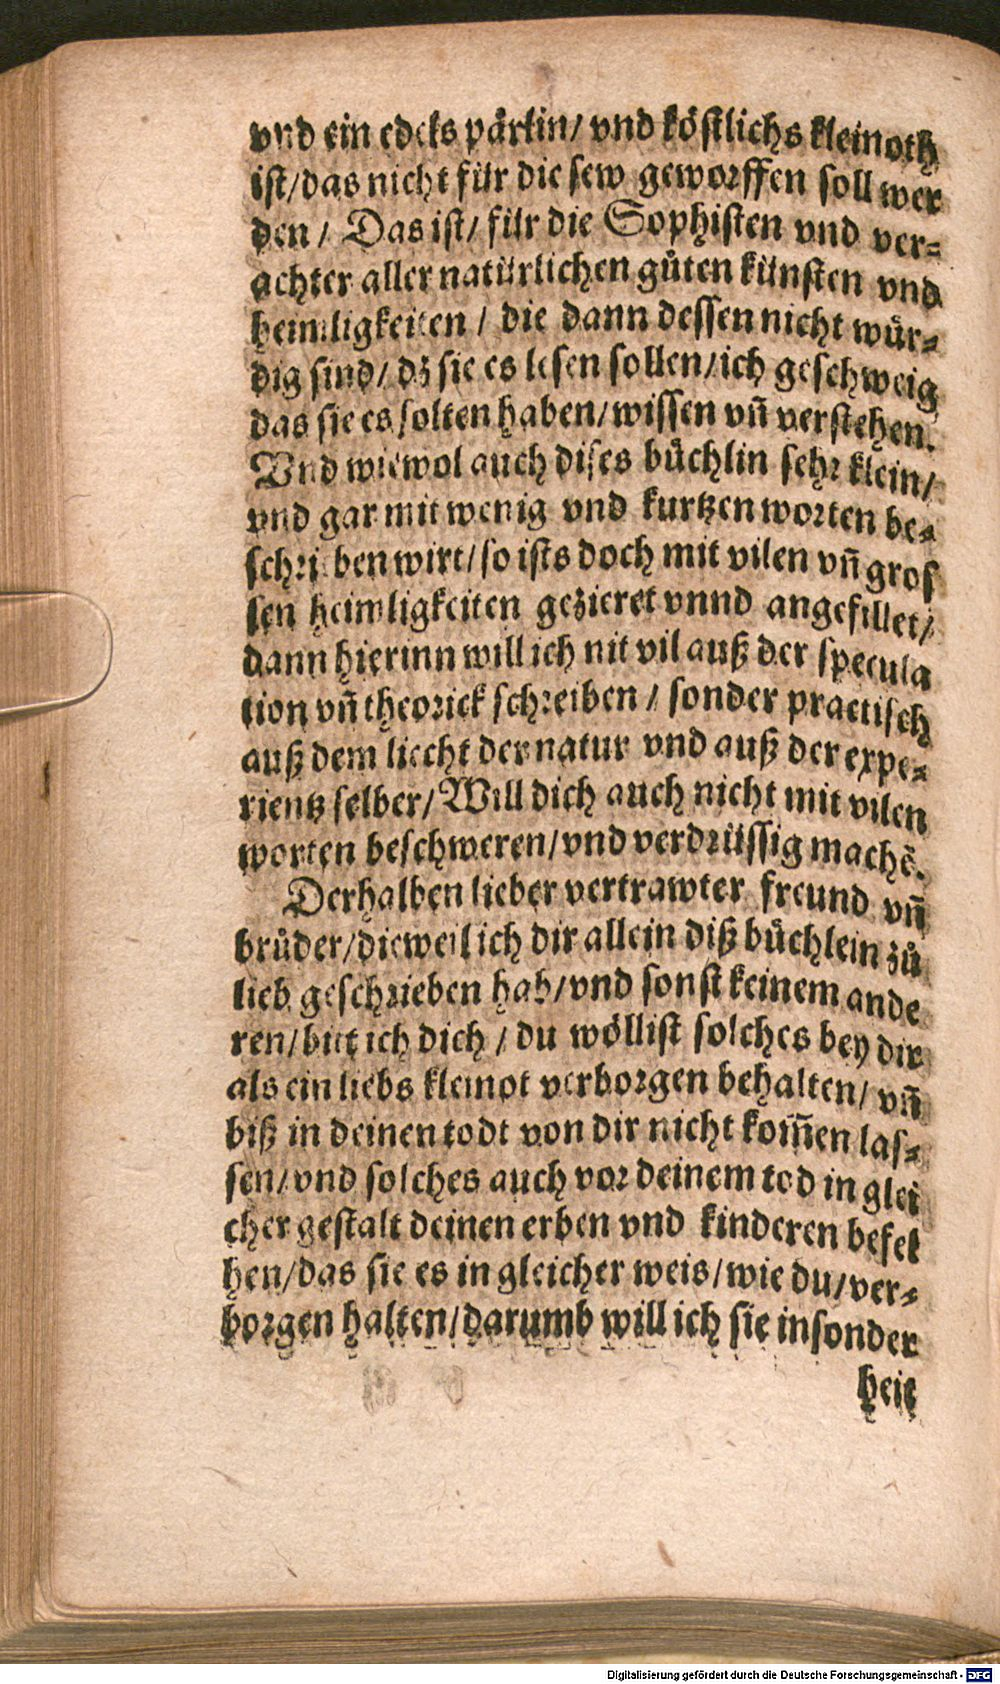 vnd ein edels pårlin/ vnd kőstlichs kleinoth
ist/das nicht für die sew geworffen soll wer
den / Das ist/ für die Sophisten vnd ver⸗
achter aller natürlichen gůten künsten vnd
heimligkeiten / die dann dessen nicht wůr⸗
dig sind/ dz̄ sie es lesen sollen/ich geschweig
das sie es solten haben/wissen vn̄ verstehen.
Vnd wiewol auch dises bůchlin sehr klein/
vnd gar mit wenig vnd kurtzen worten be⸗
schrieben wirt/so ists doch mit vilen vn̄ gros
sen heimligkeiten gezieret vnnd angefillet/
dann hierinn will ich nit vil auß der specula
tion vn̄ theorick schreiben / sonder practisch
auß dem liecht der natur vnd auß der expe⸗
rientz selber/Will dich auch nicht mit vilen
worten beschweren/vnd verdrüssig machē.
Derhalben lieber vertrawter freund vn̄
brůder/dieweil ich dir allein diß bůchlein zů
lieb geschrieben hab/vnd sonst keinem ande
ren/bit ich dich / du wőllist solches bey dir
als ein liebs kleinot verborgen behalten/ vn̄
biß in deinen todt von dir nicht kom̄en las⸗
sen/vnd solches auch vor deinem tod in glei
cher gestalt deinen erben vnd kinderen befel
hen/das sie es in gleicher weis/wie du/ver⸗
borgen halten/darumb will ich sie insonder
heit
Digitalisierung gefördert durch die Deutsche Forschungsgemeinschaft - DFG